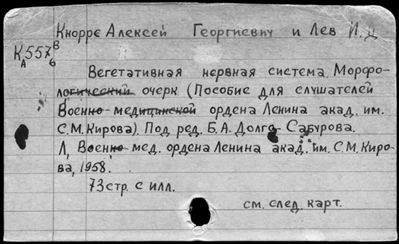 Кнорре Алексей Георгиевич и Лев И. Д
К 557 8
А 6
Вегетативная нервная система. Морфо-
логический очерк (Пособие для слушателей
Военно-медицинской ордена Ленина акад. им.
С.М.Кирова). Под ред. Б.А. Долго-Сабурова.
Л, Военно-мед. ордена Ленина акад. им. С.М.Киро-
ва, 1958.
73 стр. с илл.
см. след. карт.